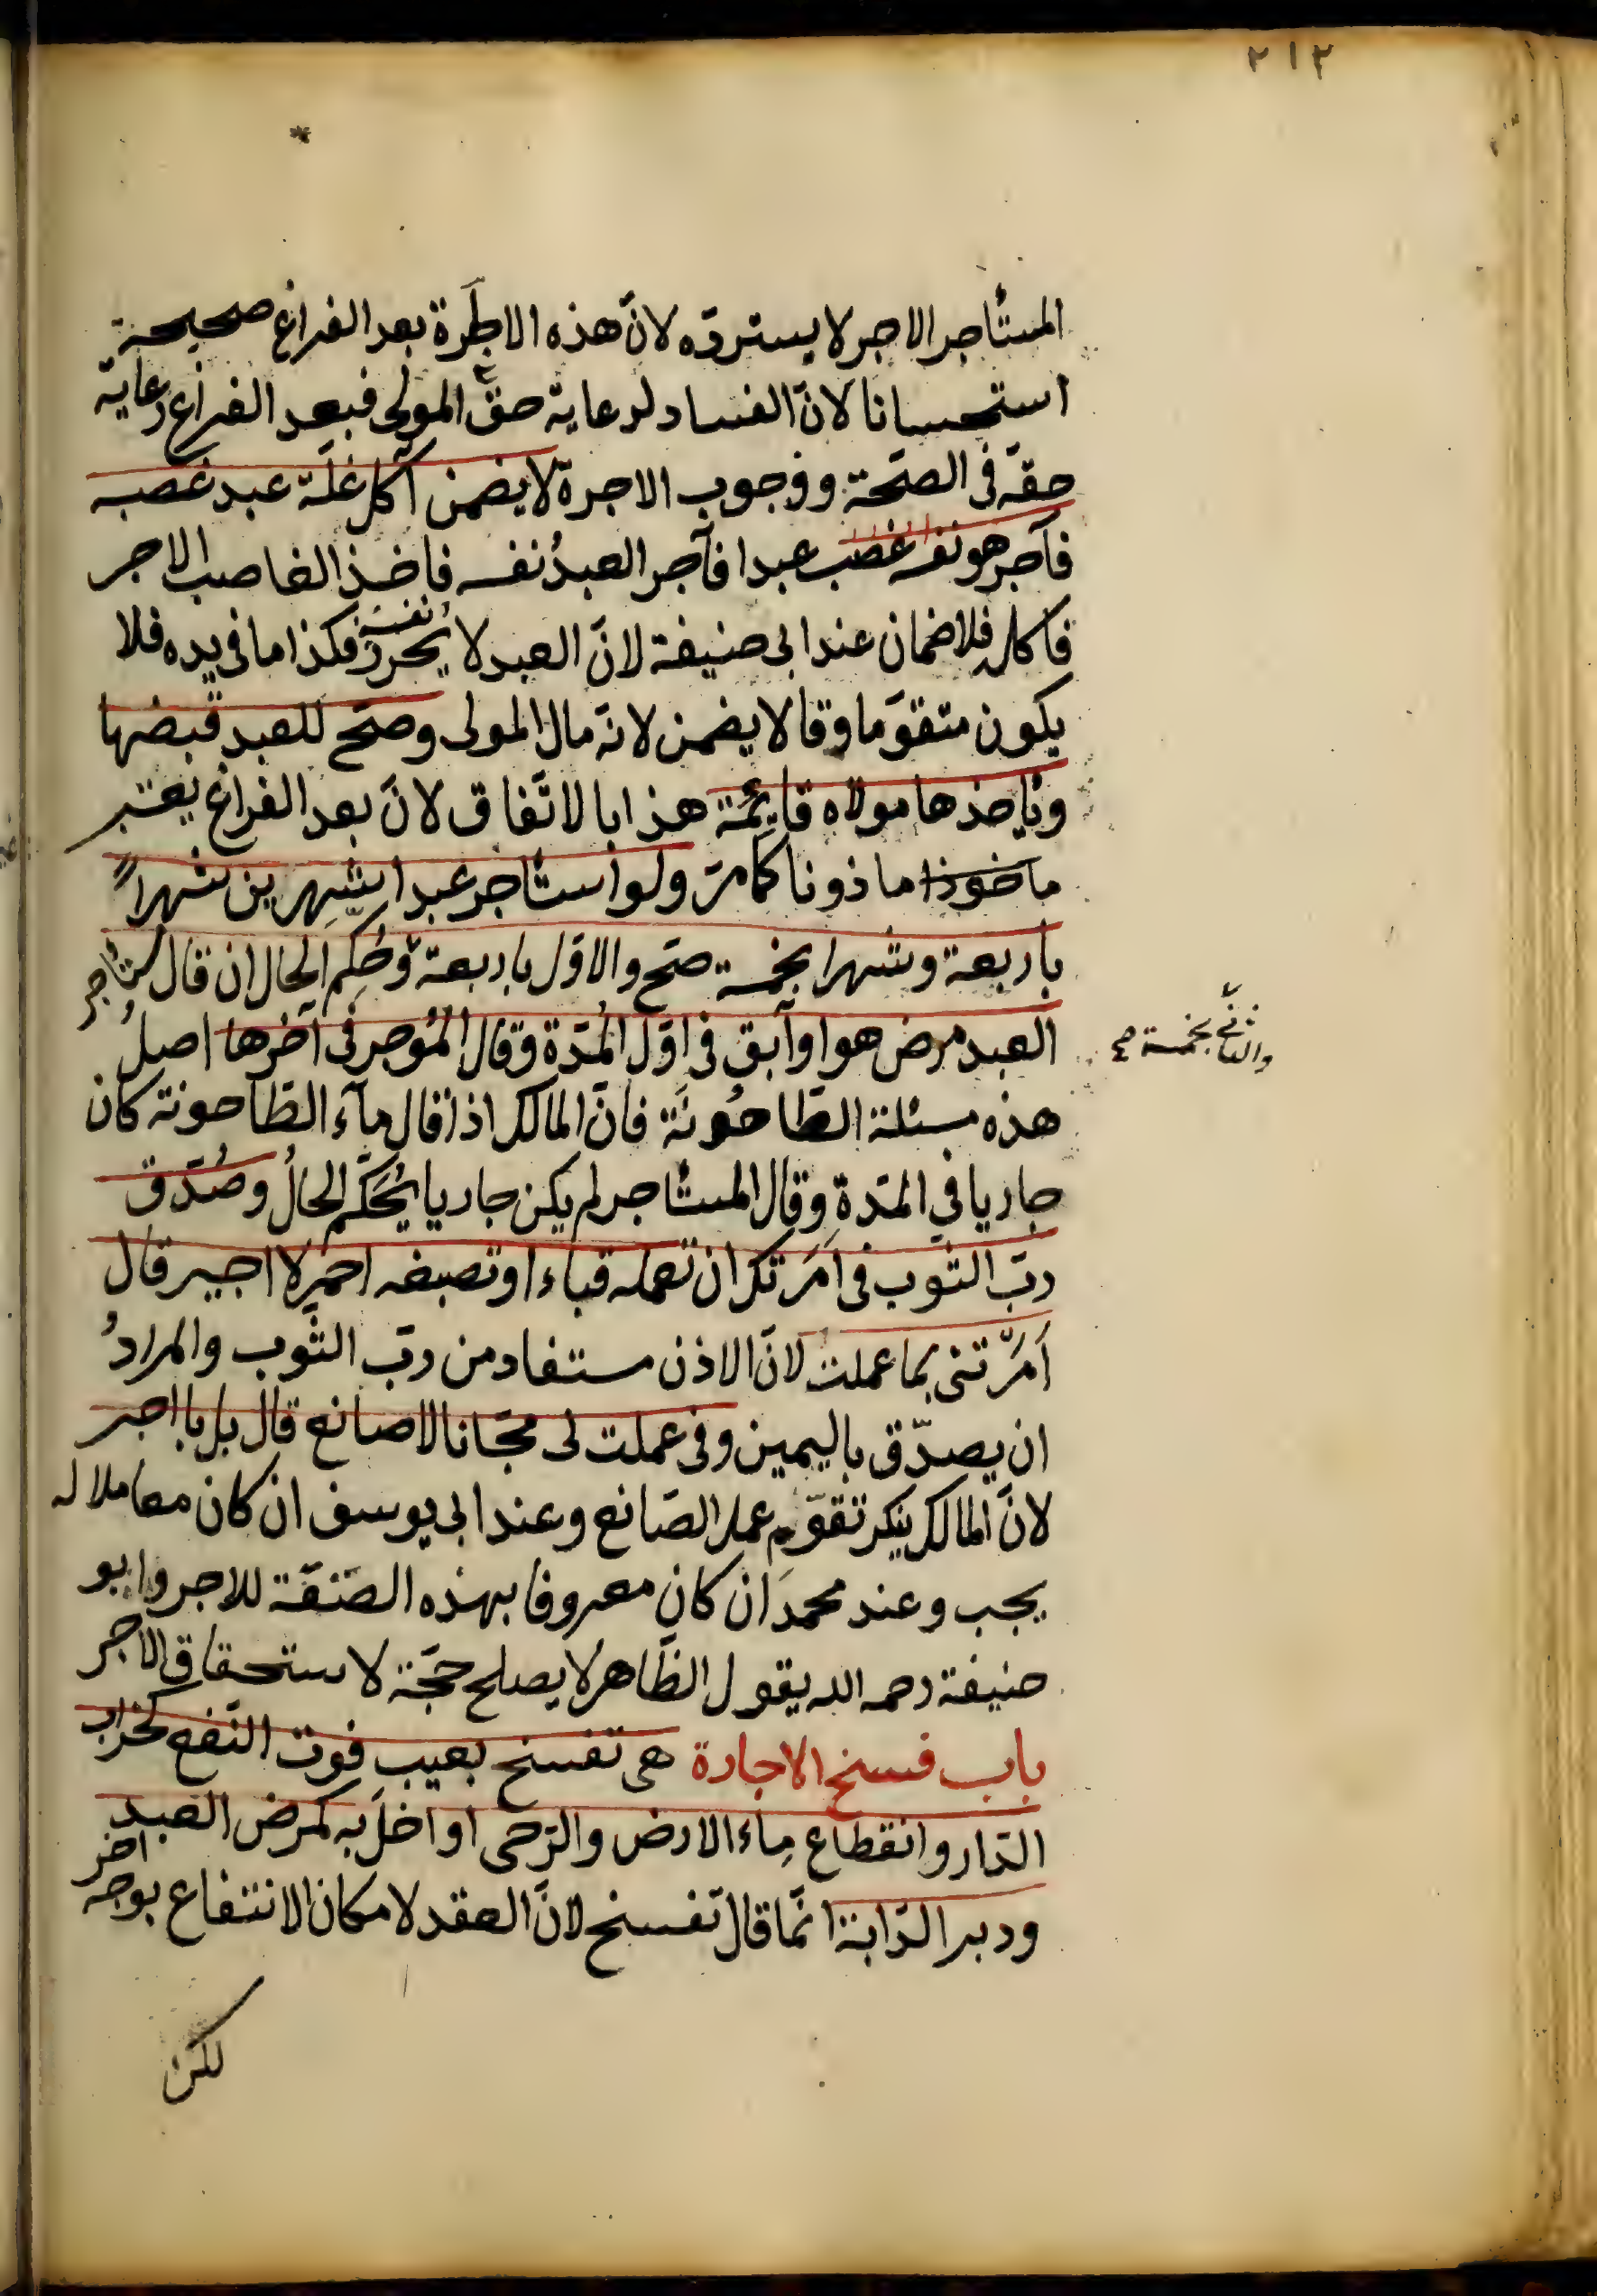 ٢١٢
المستأجر الاجر لا يستردّه لانّ هذه الاجارة بعد الفراغ صحيحة
استحسانا لانّ الفساد لرعاية حقّ المولى فبعد الفراغ رعاية
حقّه فى الصحّة ووجوب الاجرة لا يضمن آكل غلّة عبد غصبه
فآجر هو نفسه غصب عبدا فآجر العبدُ نفسه فاخذ الغاصب الاجر
فاكله فلا ضمان عند ابى حنيفة لانّ العبد لا يُحرِز نفسَه فكذا ما فى يده فلا
يكون متقوّما وقالا يضمن لانّه مال المولى وصحّ للعبد قبضها
وياخذها مولاه قايمة هذا بالاتّفاق لانّ بعد الفراغ يعتبر
ماخوذا ماذونا كما مرّ ولو استأجر عبدا شهرين شهراً
باربعة وشهرا بخمسة صحّ والاوّل باربعة وحُكِّم الحال ان قال مستأجر
والثانى بخمسة صح
العبد مرض هو او آبق فى اوّل المُدّة وقال المُوجر فى آخرها اصلُ
هذه مسئلة الطّاحُونَة فانّ المالك اذا قال مآء الطّاحونة كان
جاريا في المدّة وقال المستأجر لم يكن جاريا يُحَكَّم الحالُ وصُدّق
ربّ الثّوب فى اَمَرتك ان تعمله قباء او تصبغه احمر لا اجير قال
اَمَرْتنى بما عملت لانّ الاذن مستفاد من ربّ الثّوب والمرادُ
ان يصدّق باليمين وفى عملت لى مجّانا لا صانع قال بل باجر
لانّ المالك ينكر تقوّم عمل الصّانع وعند ابى يوسف ان كان معاملا له
يجب وعند محمدَ ان كان معروفا بهذه الصّنقة للاجر وابو
حنيفة رحمه الله يقول الظّاهر لا يصلح حجّة لاستحقاق الاجر
باب فسخ الاجارة هى تفسخ بعيب فوت النّفع كخراب
الدّار وانقطاع ماء الارض والرّحى او اخلّ به كمرض العبد
ودبر الدّابة انّما قال تفسخ لانّ العقد لامكان الانتفاع بوجه اخر
لكن